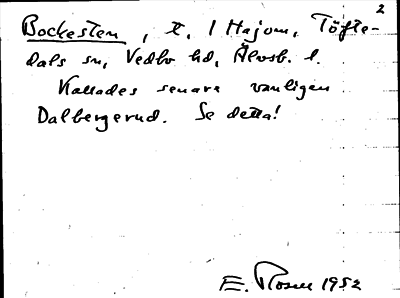 2
Bockesten, t. l Hajom, Töfte-
dals sn, Vedbo hd, Älvsb. l.
Kallades senare vanligen
Dalbergerud. Se detta!
E. Rosell 1952